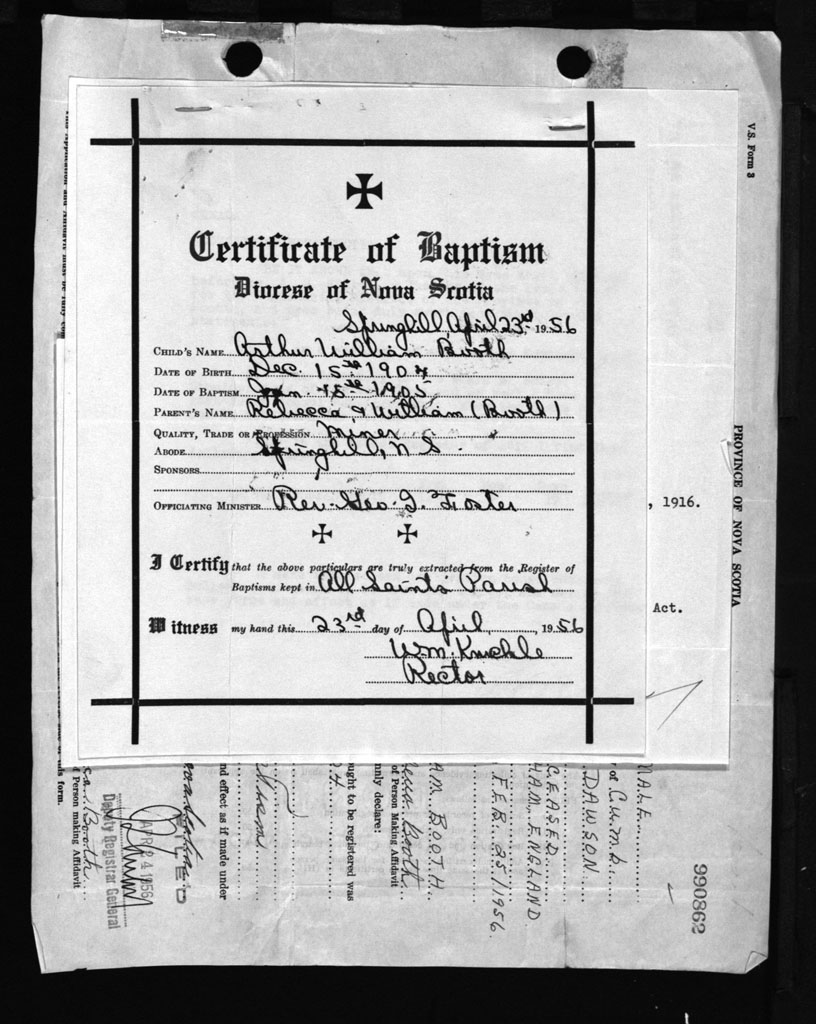 Certificate of Baptism
Diocese of Nova Scotia
Springhill, April 23rd 1956
CHILD'S NAME Arthur William Booth
DATE OF BIRTH Dec. 15th 1904
DATE OF BAPTISM Jan. 15th 1905
PARENT'S NAME Rebecca & William (Booth)
QUALITY, TRADE OR PROFESSION Miner
ABODE Springhill, N S.
SPONSORS
OFFICIATING MINISTER Rev. Geo. I. Foster
I Certify that the above particulars are truly extracted from the Register of
Baptisms kept in All Saints' Parish
Witness my hand this 23rd day of April, 1956
Wm. Knickle
Rector
V.S. Form 3
PROVINCE OF NOVA SCOTIA
, 1916.
Act.
990862
MALE
or Cumb.
DAWSON
CEASED
HAM. ENGLAND
FEB. 25/1956.
AM. BOOTH.
Booth
of Person Making Affidavit
mnly declare:
ought to be registered was
nd effect as if made under
FILED
APR 24 1956
Deputy Registrar General
Booth
f Person making Affidavit
his form.